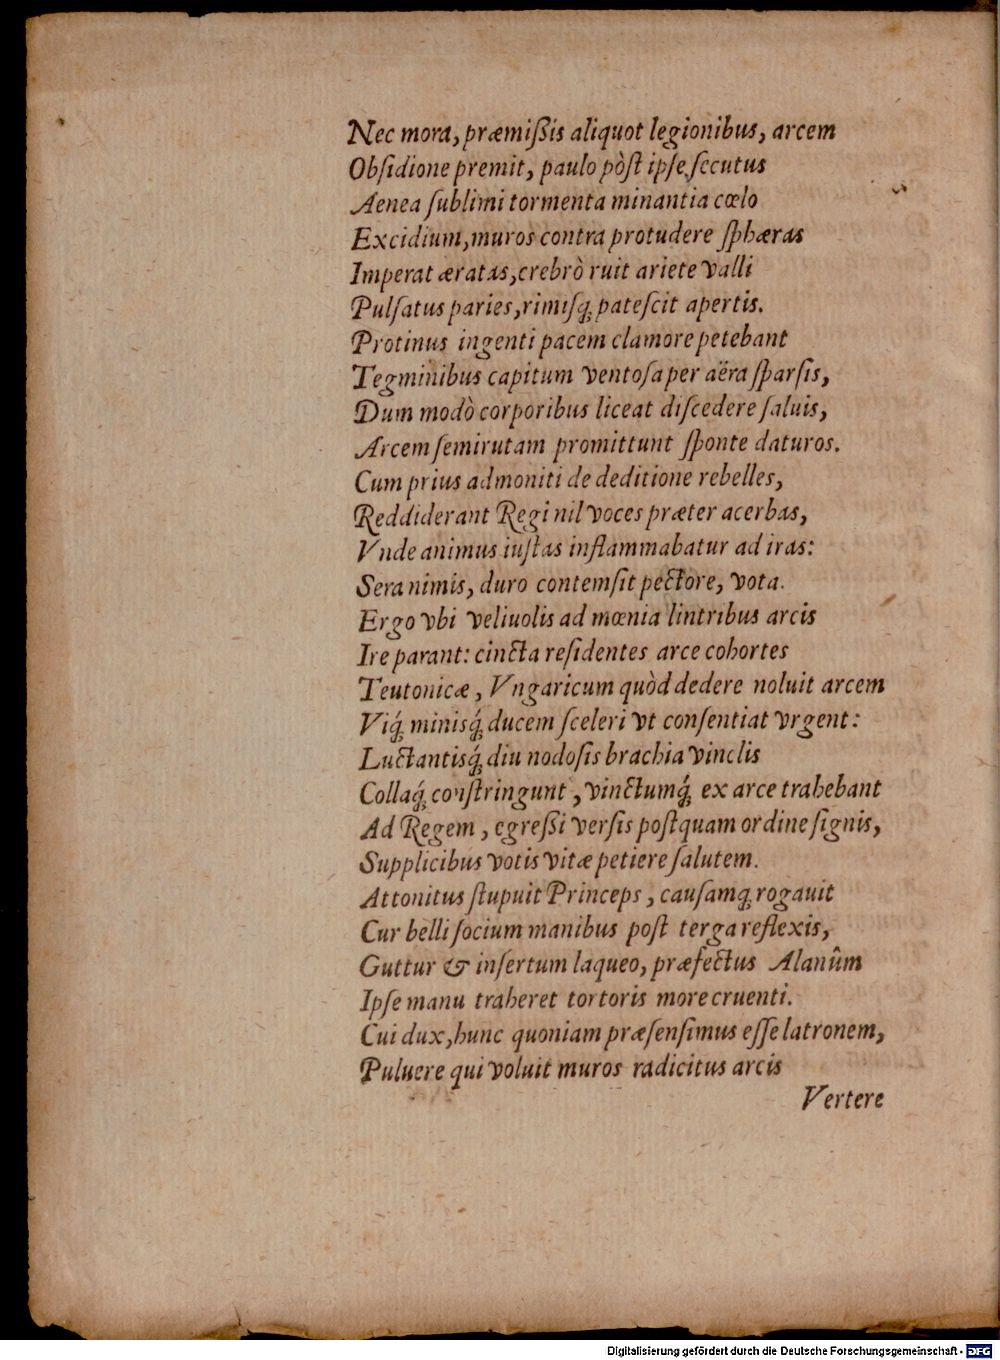 Nec mora, præmißis aliquot legionibus, arcem
Obſidione premit, paulo pòſt ipſe ſecutus
Aenea ſublimi tormenta minantia cœlo
Excidium, muros contra protudere ſphæras
Imperat æratas, crebrò ruit ariete valli
Pulſatus paries, rimiſq; pateſcit apertis.
Protinus ingenti pacem clamore petebant
Tegminibus capitum ventoſa per aëra ſparſis,
Dum modò corporibus liceat diſcedere ſaluis,
Arcem ſemirutam promittunt ſponte daturos.
Cum prius admoniti de deditione rebelles,
Reddiderant Regi nil voces præter acerbas,
Vnde animus iuſtas inflammabatur ad iras:
Sera nimis, duro contemſit pectore, vota.
Ergo vbi veliuolis ad mœnia lintribus arcis
Ire parant: cincta reſidentes arce cohortes
Teutonicæ, Vngaricum quòd dedere noluit arcem
Viq́; minisq́; ducem ſceleri vt conſentiat vrgent:
Luctantisq́; diu nodoſis brachia vinclis
Collaq́; conſtringunt, vinctumq́; ex arce trahebant
Ad Regem, egreßi verſis poſtquam ordine ſignis,
Supplicibus votis vitæ petiere ſalutem.
Attonitus ſtupuit Princeps, cauſamq; rogauit
Cur belli ſocium manibus poſt terga reflexis,
Guttur & inſertum laqueo, præfectus Alanûm
Ipſe manu traheret tortoris more cruenti.
Cui dux, hunc quoniam præſenſimus eſſe latronem,
Puluere qui voluit muros radicitus arcis
Vertere
Digitalisierung gefördert durch die Deutsche Forschungsgemeinschaft - DFG